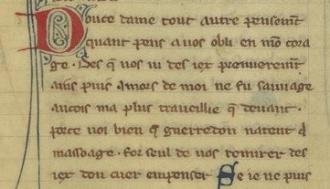 Douce dame tout autre pensem̄t
quant pens a vos obli en mō cora
ge. Des q̄ vos vi des iex premierem̄t
ains puis amors de moi ne fu sauvage
ancois ma plus travellie q̄ devant.
perc voi bien q̄ guerredon natent q̄
massoage. For seul de vos remirer des
iex dou cuer enpenser Se ie ne puis